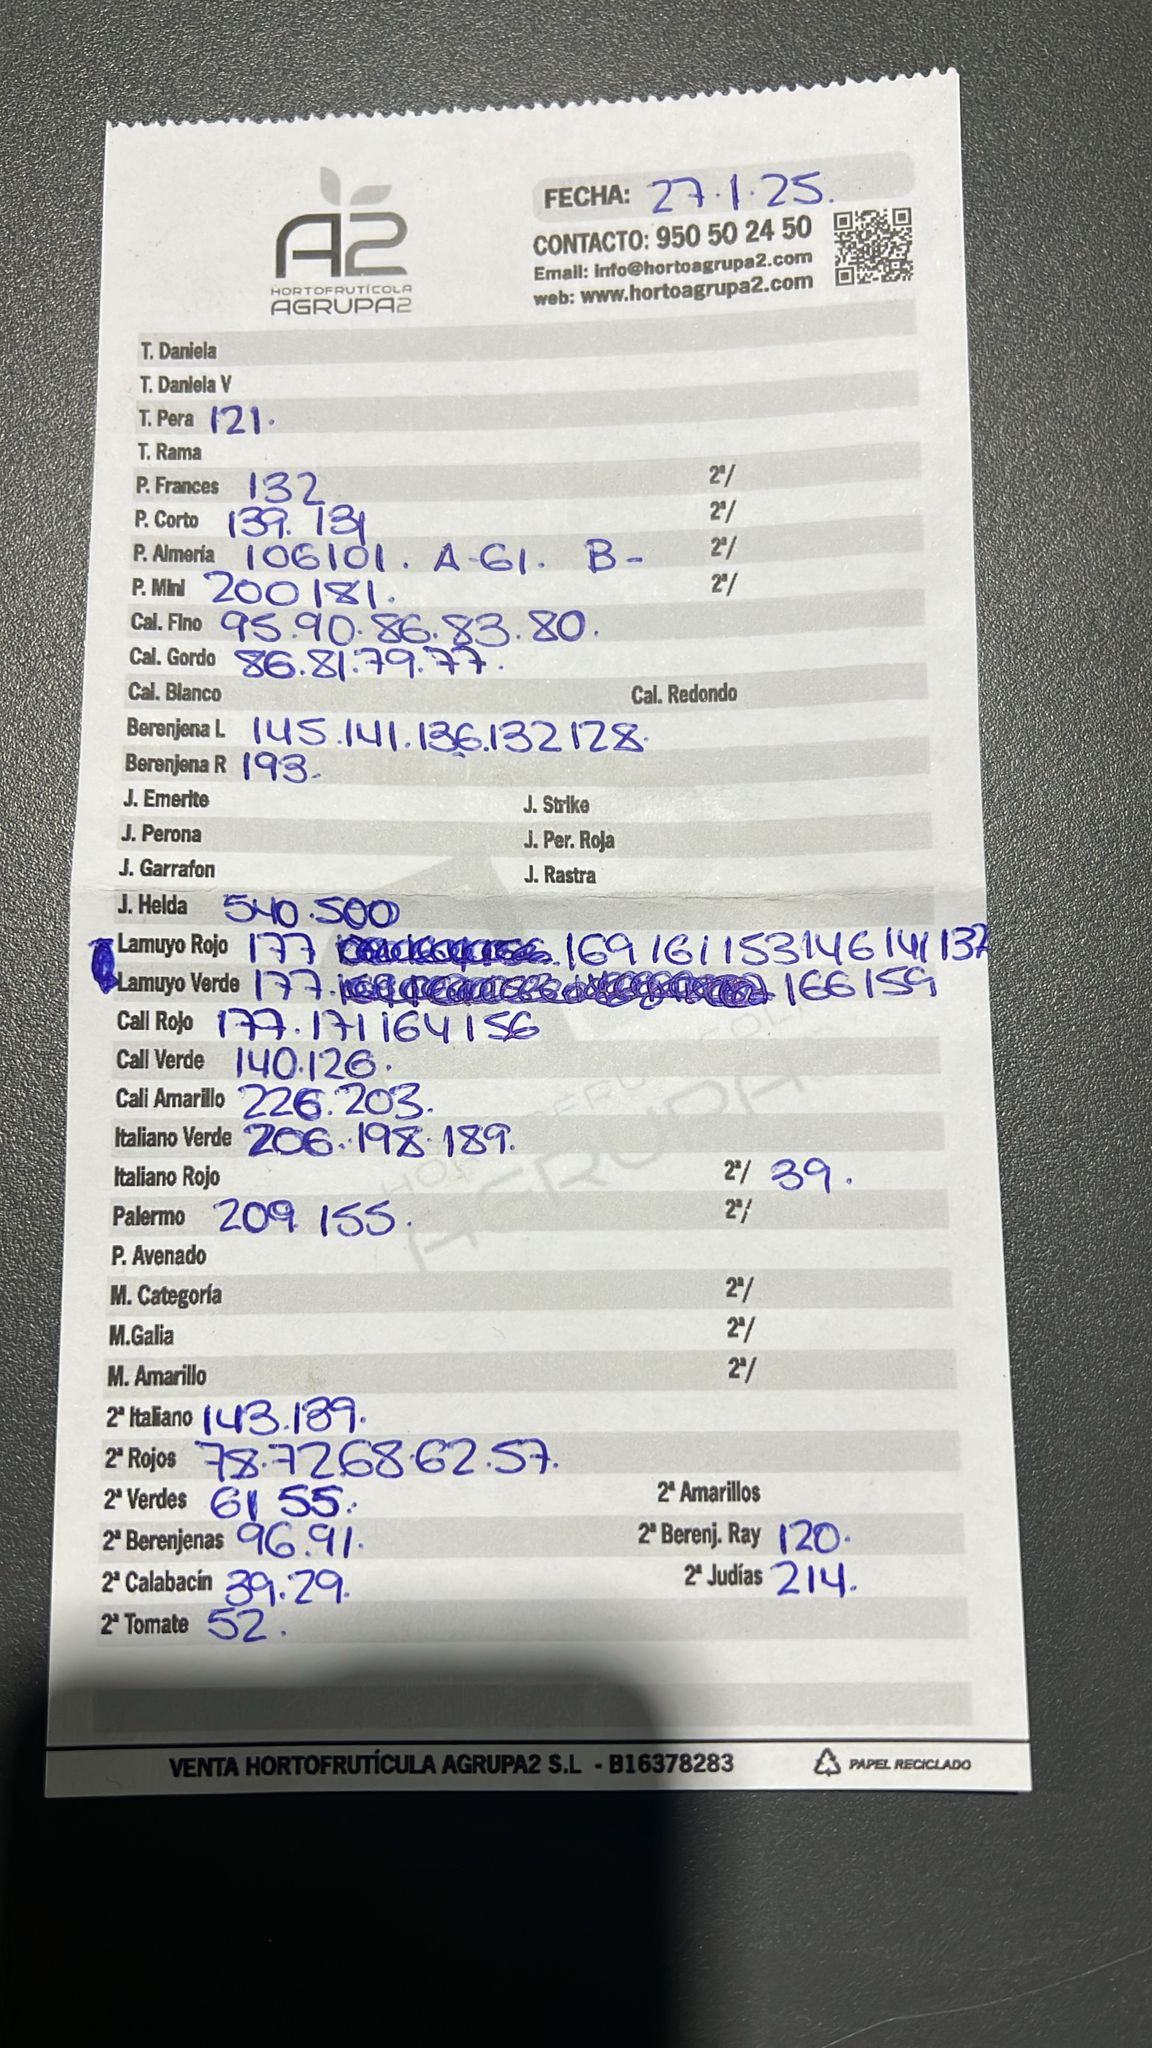 A2
HORTOFRUTÍCOLA
AGRUPA2
FECHA: 27.1.25.
CONTACTO: 950 50 24 50
Email: info@hortoagrupa2.com
web: www.hortoagrupa2.com
T. Daniela
T. Daniela V
T. Pera 121.
T. Rama
P. Frances 132 2ª/
P. Corto 139. 131 2ª/
P. Almería 106101. A-61. B- 2ª/
P. Mini 200181. 2ª/
Cal. Fino 95.90.86.83.80.
Cal. Gordo 86.81.79.77.
Cal. Blanco Cal. Redondo
Berenjena L 145.141.136.132128.
Berenjena R 193.
J. Emerite J. Strike
J. Perona J. Per. Roja
J. Garrafon J. Rastra
J. Helda 540.500
Lamuyo Rojo 177 .169 161 153 146 141 137
Lamuyo Verde 177. 166 159
Cali Rojo 177.171 164 156
Cali Verde 140.126.
Cali Amarillo 226.203.
Italiano Verde 206.198.189.
Italiano Rojo 2ª/ 39.
Palermo 209 155. 2ª/
P. Avenado
M. Categoría 2ª/
M.Galia 2ª/
M. Amarillo 2ª/
2ª Italiano 143.139.
2ª Rojos 78.7268.62.57.
2ª Verdes 61 55. 2ª Amarillos
2ª Berenjenas 96.91. 2ª Berenj. Ray 120.
2ª Calabacín 39.29. 2ª Judías 214.
2ª Tomate 52.
VENTA HORTOFRUTÍCULA AGRUPA2 S.L - B16378283 PAPEL RECICLADO